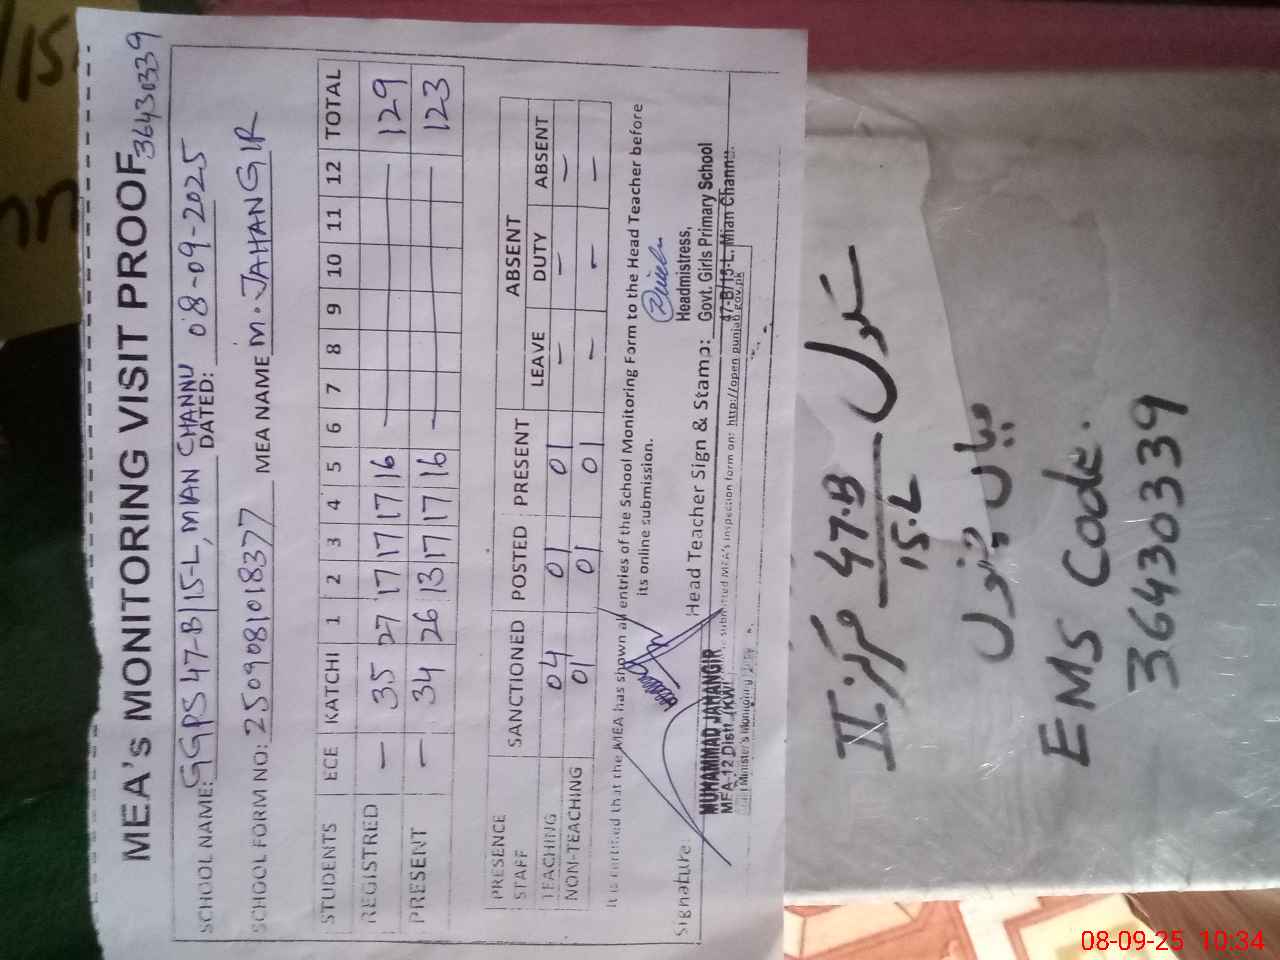 MEA's MONITORING VISIT PROOF
36430339
SCHOOL NAME: GGPS 47-B/15-L, MIAN CHANNU DATED: 08-09-2025
SCHOOL FORM NO: 2509081018377 MEA NAME M. JAHANGIR
STUDENTS ECE KATCHI 1 2 3 4 5 6 7 8 9 10 11 12 TOTAL
REGISTRED — 35 27 17 17 17 16 — 129
PRESENT — 34 26 13 17 17 16 — 123
PRESENCE STAFF SANCTIONED POSTED PRESENT ABSENT
LEAVE DUTY ABSENT
TEACHING 04 01 01 — — —
NON-TEACHING 01 01 01 — — —
It is certified that the MEA has shown all entries of the School Monitoring Form to the Head Teacher before
its online submission.
Signature: Head Teacher Sign & Stamp:
Headmistress,
Govt. Girls Primary School
47-B/15-L, Mian Channu.
MUHAMMAD JAHANGIR
MEA-12 Distt (KWL
submitted MEA's inspection form on: http://open.punjab.gov.pk
II مرکز 47-B سکول
15-L
میاں چنوں
EMS Code.
36430339
08-09-25 10:34